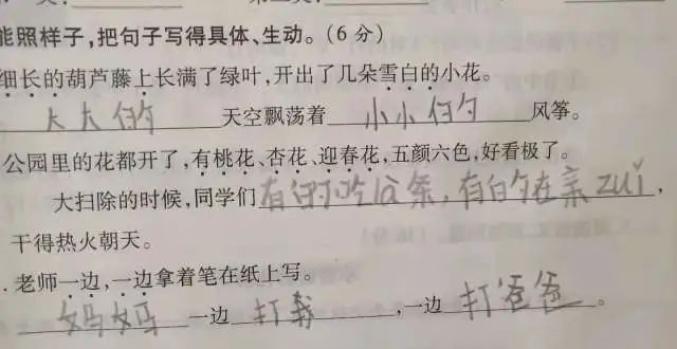 能照样子,把句子写得具体、生动。(6分)
细长的葫芦藤上长满了绿叶,开出了几朵雪白的小花。
大大的天空飘荡着小小的风筝。
公园里的花都开了,有桃花、杏花、迎春花,五颜六色,好看极了。
大扫除的时候,同学们有的吃,有的在亲zuǐ,
干得热火朝天。
.老师一边,一边拿着笔在纸上写。
妈妈一边打我,一边打爸爸。